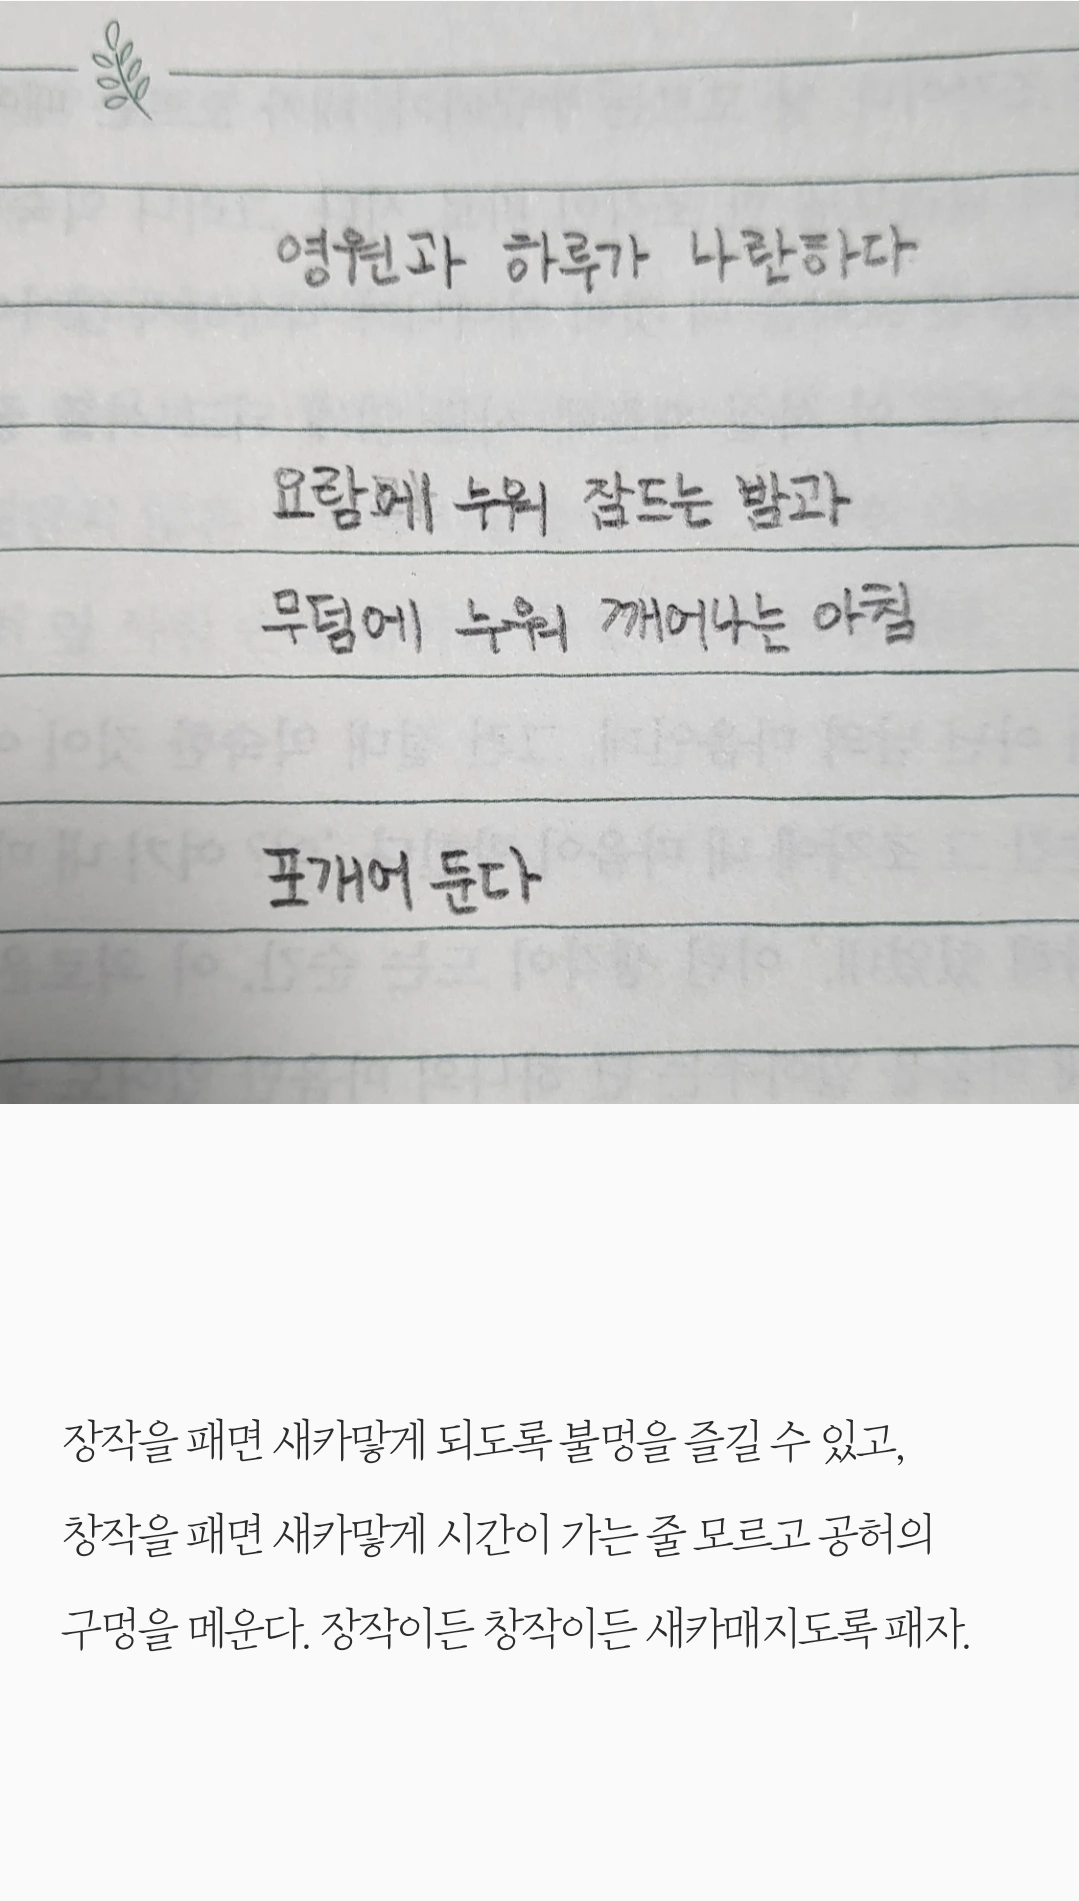 영원과 하루가 나란하다
요람에 누워 잠드는 밤과
무덤에 누워 깨어나는 아침
포개어 둔다
장작을 패면 새카맣게 되도록 불멍을 즐길 수 있고,
창작을 패면 새카맣게 시간이 가는 줄 모르고 공허의
구멍을 메운다. 장작이든 창작이든 새카매지도록 패자.